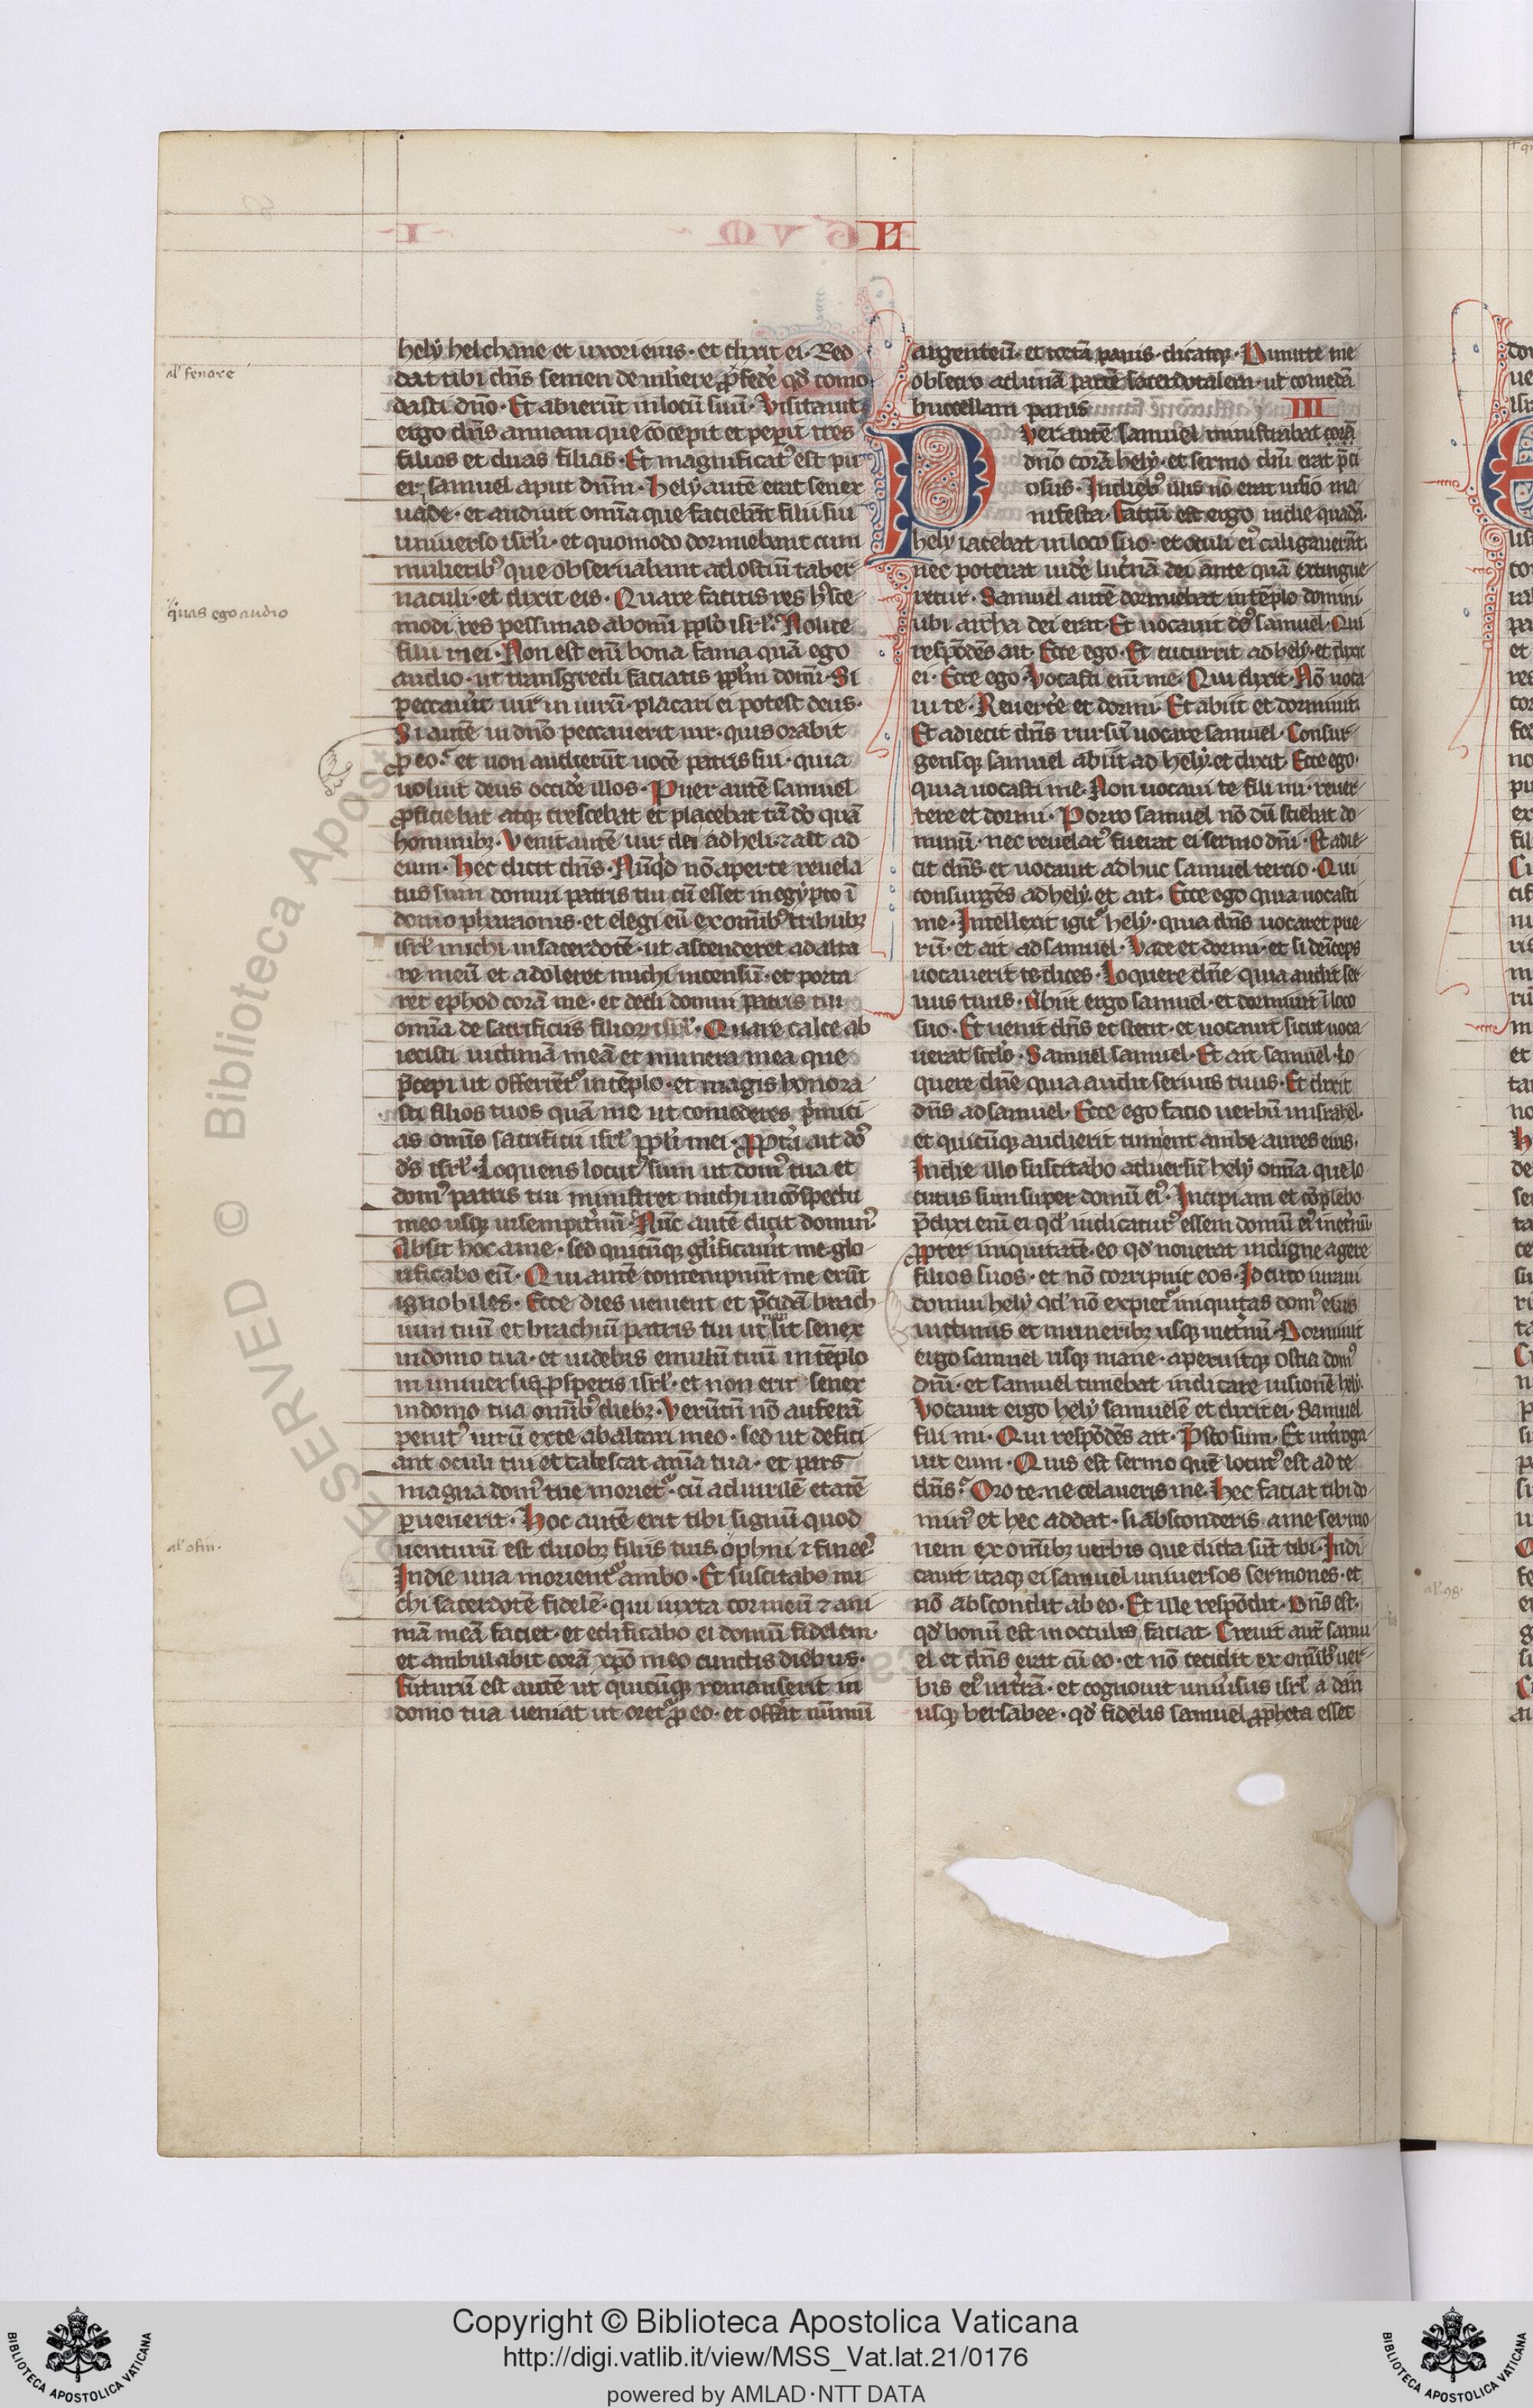 L
hely helchane et uxori eius · et dixit ei · Red
al' fenore
dat tibi dn̄s semen de muliere p̱ fede qd̄ como
dasti dn̄o · Et abierūt in locū suū · Visitauit
ergo dn̄s annam que cōcepit et peperit tres
filios et duas filias · Et magnificatꝰ est pu
er samuel aput dn̄m · Hely autē erat senex
ualde · et audiuit om̄ia que faciebāt filii sui
uniuerso isrl̄i · et quomodo dormiebant cum
mulieribꝰ que obseruabant ad ostiū taber
naculi · et dixit eis · Quare facitis res hꝰce
quas ego audio
modi res pessimas ab om̄i pp̄lo isrl̄ · Nolite
filii mei · Non est enī bona fama quā ego
audio · ut transgredi faciatis pp̄lm domī · Si
peccauīt uir in uirū · placari ei potest deus ·
Si autē in dn̄o peccauerit uir · quis orabit
p̱ eo · et non audierūt uocē patris sui · quia
uoluit deus occidē illos · Puer autē samuel
p̱ficiebat atqꝫ crescebat et placebat tā dō quā
hominibꝫ · Venit autē uir dei ad heli · ⁊ ait ad
eum · Hec dicit dn̄s · Nūqd̄ nō aperte reuela
tus sum domui patris tui cū esset in egypto ī
domo pharaonis · et elegi eū ex omībꝰ tribubꝫ
isrl̄ michi in sacerdotē · ut ascenderet ad alta
re meū et adoleret michi incensū · et porta
ret ephod corā me · et dedi domui patris tui
om̄ia de sacrificiis filioꝝ isrl̄ · Quare calce ab
iecisti uictimā meā et munera mea que
p̄cepi ut offerrētꝰ in tēplo · et magis honora
sti filios tuos quā me ut comederes p̄miti
as om̄is sacrificii isrl̄ pp̄li mei · p̱pt̄a ait dō
dꝰs isrl̄ · Loquens locutꝰ sum ut domꝰ tua et
domꝰ patris tui ministret michi in cōspectu
meo usqꝫ in sempit̄nū · Nūc autē dicit dominꝰ ·
Absit hoc a me · sed quicūqꝫ gl̄ificauīt me glo
rificabo eū · Qui autē contempnūt me erūt
ignobiles · Ecce dies uenient et p̄cidā brach
ium tuū et brachiū patris tui ut non sit senex
in domo tua · et uidebis emulū tuū in tēplo
in uniuersis p̱speris isrl̄ · et non erit senex
in domo tua omībꝰ diebꝫ · Verūtn̄ nō auferā
penitꝰ uirū ex te ab altari meo · sed ut defici
ant oculi tui et tabescat anīa tua · et pars
magna domꝰ tue moriet · cū ad uirilē etatē
ꝑuenerit · Hoc autē erit tibi signū quod
al' ofin ·
uenturū est duobꝫ filiis tuis ophni ⁊ fineeꝰ ·
In die una morient ambo · Et suscitabo mi
chi sacerdotē fidelē · qui iuxta cor meū ⁊ ani
mā meā faciet · et edificabo ei domū fidelem ·
et ambulabit corā xp̄o meo cunctis diebus ·
Futurū est autē ut quicūqꝫ remanserit in
domo tua ueniat ut oret p̱ eo · et offerat nūmū
argenteū · et tortā panis · dicatqꝫ · Dimitte me
obsecro ad unā partē sacerdotalem · ut comedā
buccellam panis
III
Puer autē samuel ministrabat corā
dn̄o corā hely · et sermo dn̄i erat p̄ci
osus · In diebꝰ illis nō erat uisio ma
nifesta · Factū est ergo in die quadā ·
hely iacebat in loco suo · et oculi eiꝰ caligauerāt ·
nec poterat uidē luc̄nā dei ante quā extingue
retur · Samuel autē dormiebat in tēplo domini
ubi archa dei erat · Et uocauit dōs samuel · Qui
respōdēs ait · Ecce ego · Et cucurrit ad hely · et dixit
ei · Ecce ego · Vocasti enī me · Qui dixit · Nō uoca
ui te · Reuert̄e et dormi · Et abiit et dormiuit ·
Et adiecit dn̄s rursū uocare samuel · Consur
gensqꝫ samuel abiit ad hely · et dixit · Ecce ego ·
quia uocasti me · Non uocaui te fili mi · reuer
tere et dormi · Porro samuel nō dū sciebat do
minū · nec reuelatꝰ fuerat ei sermo dn̄i · Et adie
cit dn̄s · et uocauit adhuc samuel tercio · Qui
consurgēs ad hely · et ait · Ecce ego quia uocasti
me · Intellexit igit hely · quia dn̄s uocaret pue
rū · et ait ad samuel · Vade et dormi · et si deīceps
uocauerit te dices · Loquere dn̄e quia audit ser
uus tuus · Abiit ergo samuel · et dormiuit ī loco
suo · Et uenit dn̄s et stetit · et uocauit sicut uoca
uerat scd̄o · Samuel samuel · Et ait samuel · Lo
quere dn̄e quia audit seruus tuus · Et dixit
dn̄s ad samuel · Ecce ego facio uerbū in israhel ·
et quicūqꝫ audierit tinnient ambe aures eius ·
In die illo suscitabo aduersū hely om̄ia que lo
cutus sum super domū eiꝰ · Incipiam et cōplebo
p̄dixi enī ei qd̄ iudicaturꝰ essem domū eiꝰ in et̄nū ·
p̱pter iniquitatē · eo qd̄ nouerat indigne agere
filios suos · et nō corripuit eos · Idcirco iuraui
domui hely qd̄ nō expiet iniquitas domꝰ eius
uictimis et muneribꝫ usqꝫ in et̄nū · Dormiuit
ergo samuel usqꝫ mane · aperuitqꝫ ostia domꝰ
dn̄i · et samuel timebat indicare uisionē hely ·
Vocauit ergo hely samuelē et dixit ei · Samuel
fili mi · Qui respōdēs ait · P̄sto sum · Et int̄roga
uit eum · Quis est sermo quē locutꝰ est ad te
dn̄s · Oro te · ne celaueris me · Hec faciat tibi do
minꝰ et hec addat · si absconderis a me sermo
nem ex omībꝫ uerbis que dicta sūt tibi · Indi
cauit itaqꝫ ei samuel uniuersos sermones · et
nō abscondit ab eo · Et ille respōdit · Dn̄s est ·
qd̄ bonū est in oculis faciat · Creuit aut̄ samu
el et dn̄s erat cū eo · et nō cecidit ex omībꝰ uer
bis eiꝰ in t̄rā · et cognouit uniūsus isrl̄ a dan
usqꝫ bersabee · qd̄ fidelis samuel p̱pheta esset
Copyright © Biblioteca Apostolica Vaticana
http://digi.vatlib.it/view/MSS_Vat.lat.21/0176
powered by AMLAD·NTT DATA
BIBLIOTECA APOSTOLICA VATICANA
BIBLIOTECA APOSTOLICA VATICANA
RESERVED © Biblioteca Apost